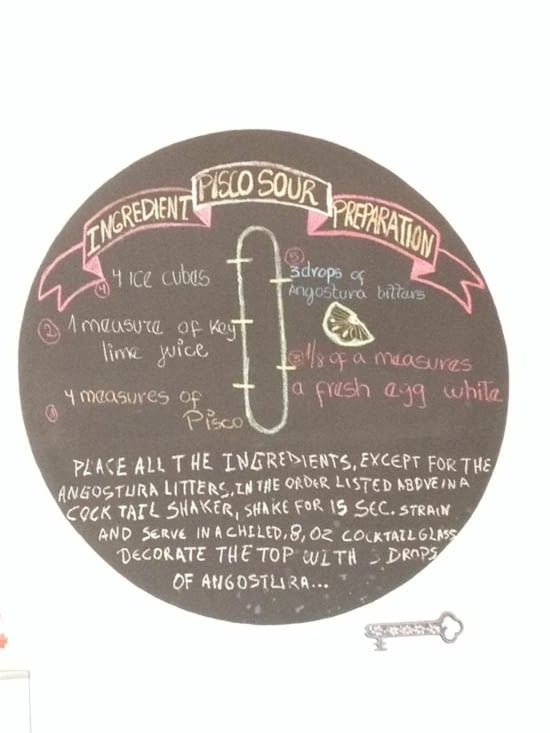 INGREDIENT PISCO SOUR PREPARATION
4 4 ICE CUBES
5
3 drops of
Angostura bitters
2 1 measure of Key
lime juice
3 1/8 of a measures
a fresh egg white
1 4 measures of
Pisco
PLACE ALL THE INGREDIENTS, EXCEPT FOR THE
ANGOSTURA LITTERS, IN THE ORDER LISTED ABOVE IN A
COCK TAIL SHAKER, SHAKE FOR 15 SEC. STRAIN
AND SERVE IN A CHILED, 8, OZ COCKTAIL GLASS
DECORATE THE TOP WITH 3 DROPS
OF ANGOSTURA...